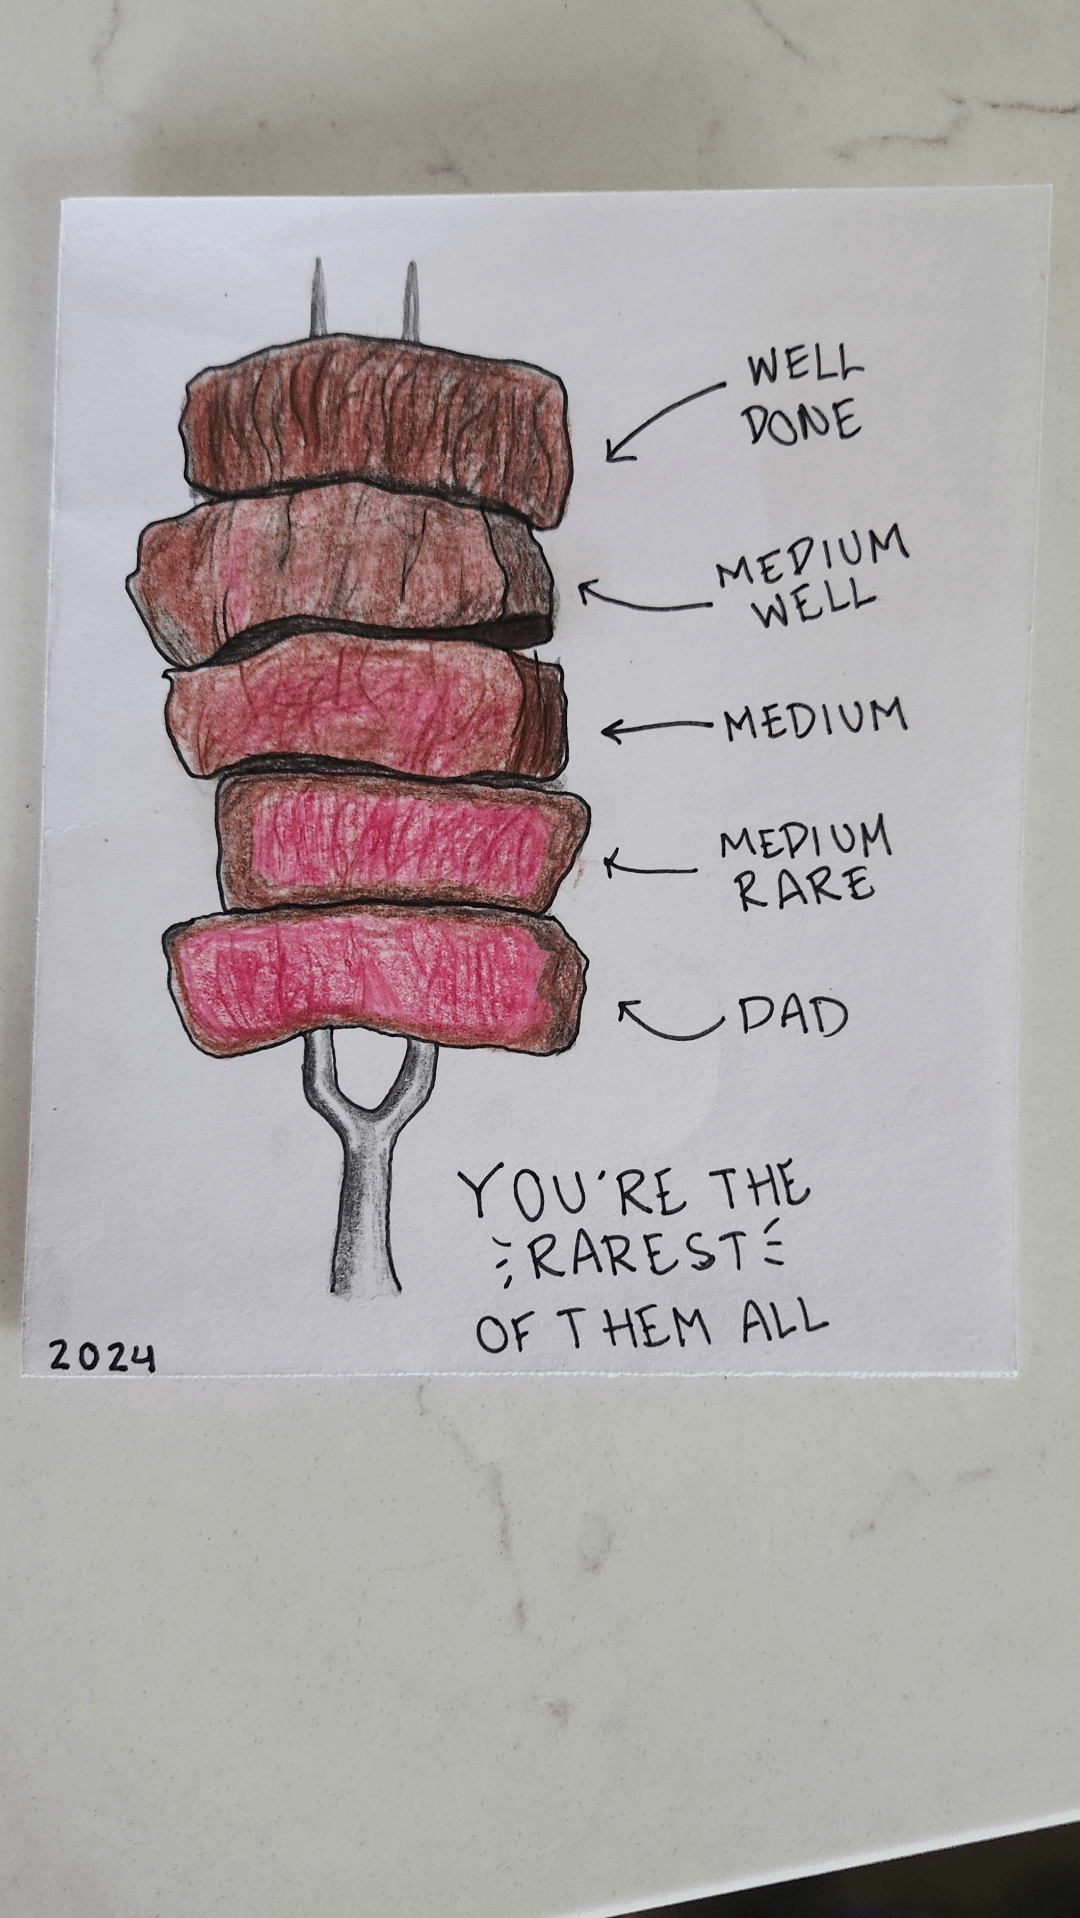 WELL
DONE
MEDIUM
WELL
MEDIUM
MEDIUM
RARE
DAD
YOU'RE THE
RAREST
OF THEM ALL
2024